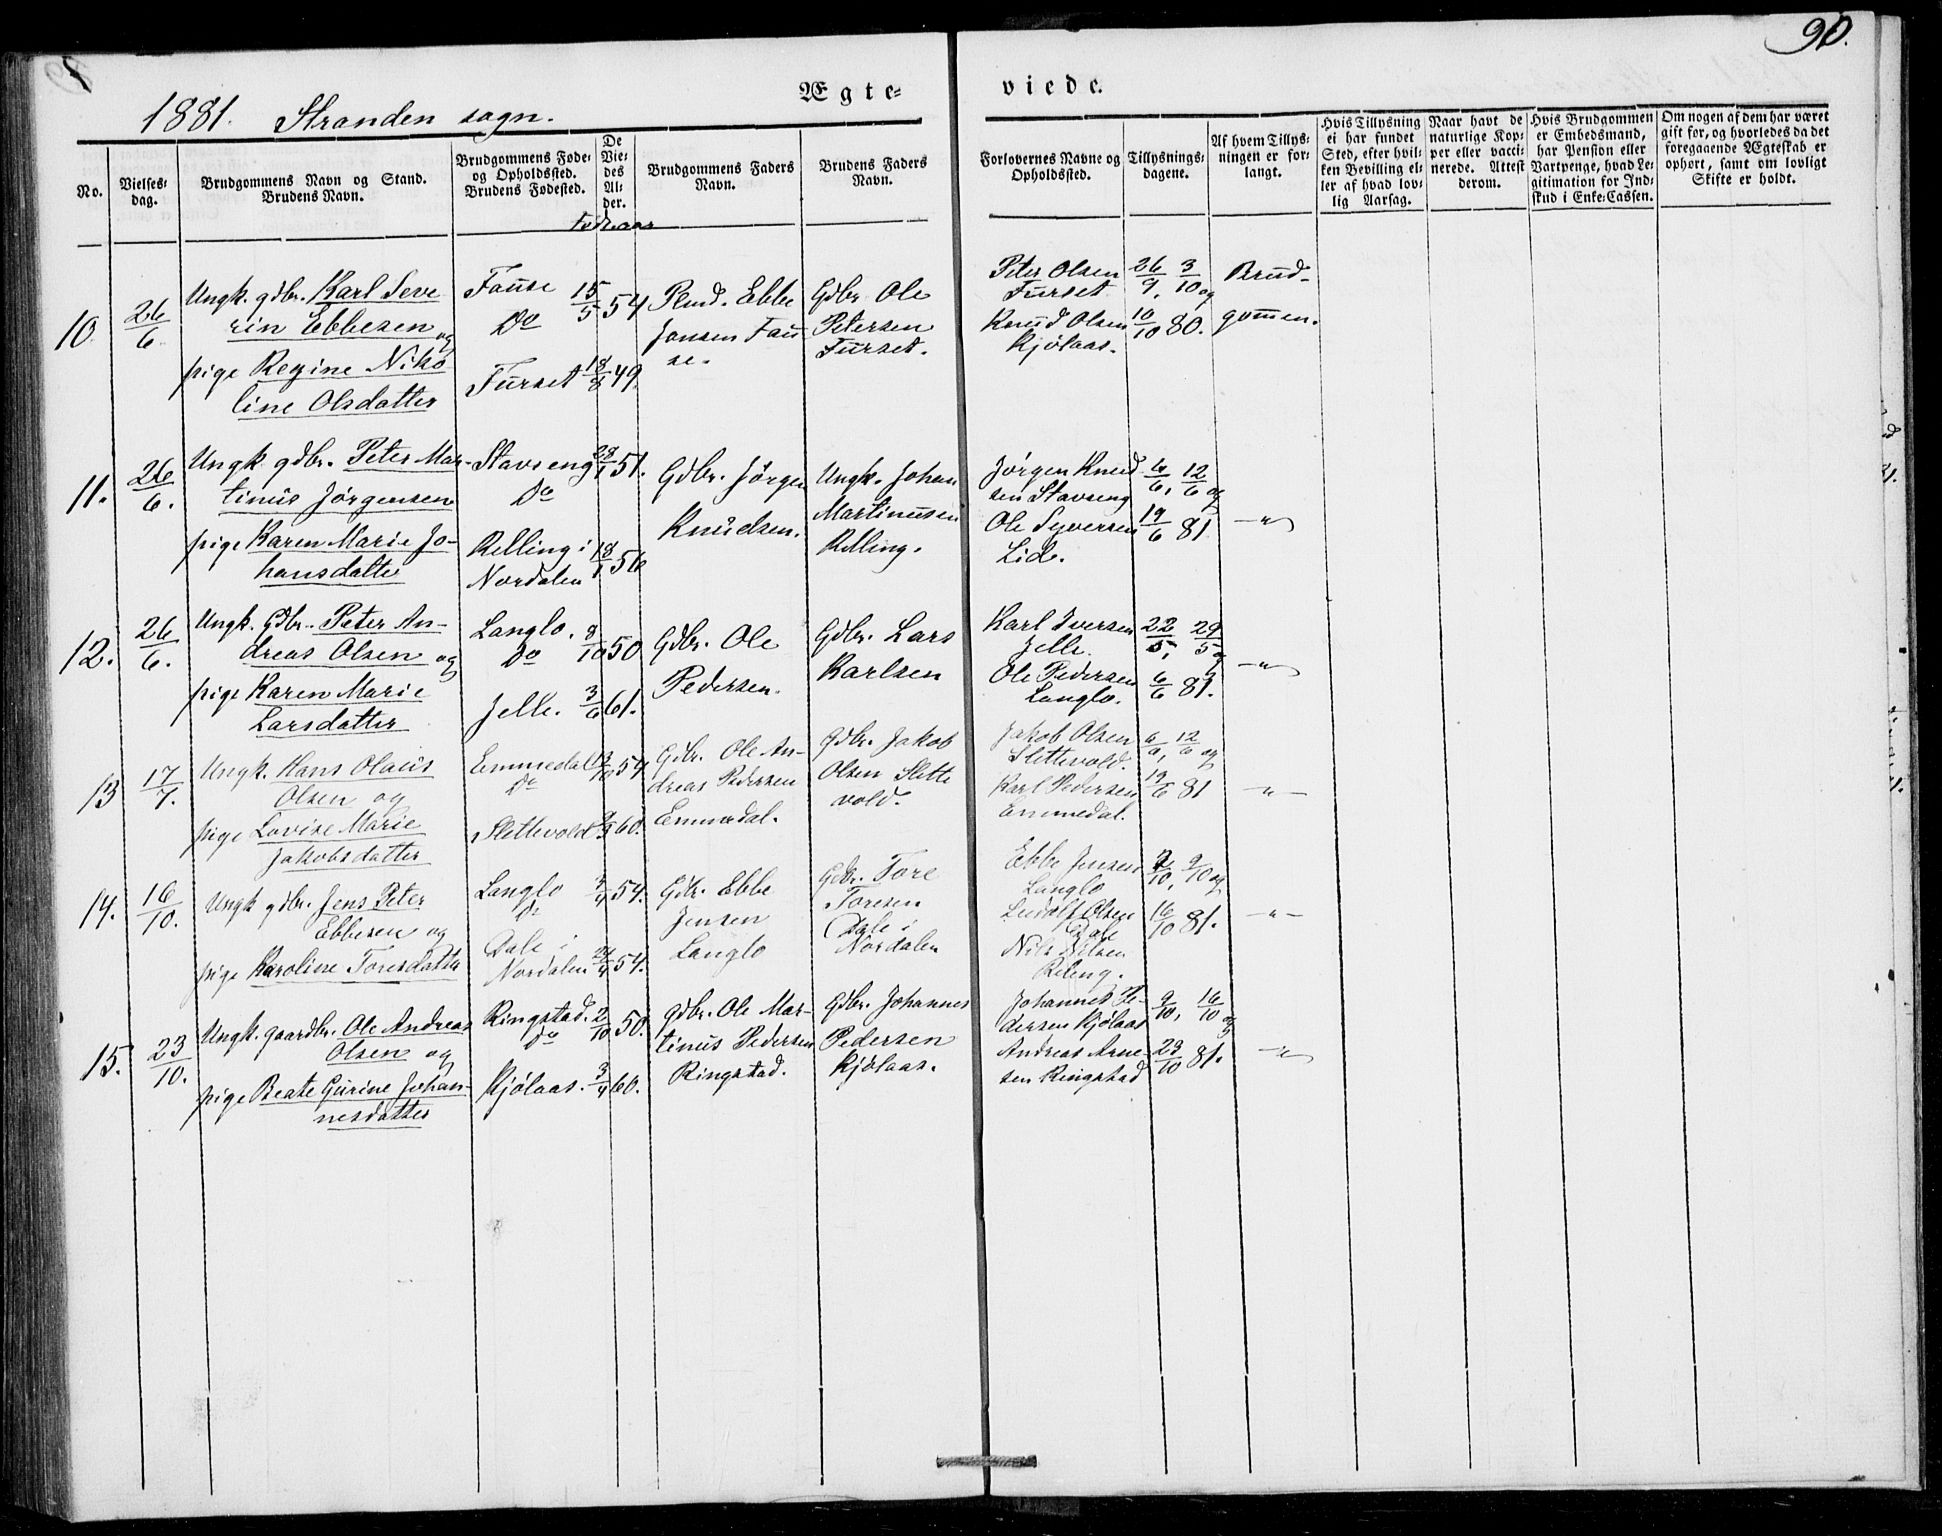 90.
Ægte-
viede.
1881. Stranden sogn.
No.
Vielses-
dag.
Brudgommens Navn og Stand.
Brudens Navn.
Brudgommens Føde-
og Opholdssted.
Brudens Fødested.
De
Vie-
des
Al-
der.
Brudgommens Faders
Navn.
Brudens Faders
Navn.
Forlovernes Navne og
Opholdssted.
Tillysnings-
dagene.
Af hvem Tillys-
ningen er for-
langt.
Hvis Tillysning
ei har fundet
Sted, efter hvil-
ken Bevilling el-
ler af hvad lov-
lig Aarsag.
Naar havt de
naturlige Kop-
per eller vacci-
nerede. Attest
derom.
Hvis Brudgommen
er Embedsmand,
har Pension eller
Vartpenge, hvad Le-
gitimation for Ind-
skud i Enke-Cassen.
Om nogen af dem har været
gift før, og hvorledes da det
foregaaende Ægteskab er
ophørt, samt om lovligt
Skifte er holdt.
Fødeaar
10
26/6.
Ungk. gdbr. Karl Seve
rin Ebbesen og
pige Regine Niko
line Olsdatter
Fause
Do
Furset
15/5 54
18/8 49.
Pens. Ebbe
Jonsen Fau
se.
Gdbr. Ole
Petersen
Furset.
Peter Olsen
Furset
Knud Olsen
Kjølaas.
26/9, 3/10 og
10/10 80.
Brud-
gommen.
11.
26/6.
Ungk. gdbr. Peter Mar-
tinus Jørgensen
pige Karen Marie Jo-
hansdatter
Stavseng
Do
Relling i
Nordalen
28/1 51.
18/1 56
Gdbr. Jørgen
Knudsen.
Ungk. Johan
Martinusen
Relling.
Jørgen Knud
sen Stavseng
Ole Syversen
Lid.
6/6, 12/6 og
19/6 81
-"-
12.
26/6.
Ungk. Gdbr. Peter An-
dreas Olsen og
pige Karen Marie
Larsdatter
Langlo.
Do
Jelle.
8/10 50
3/6 61.
Gdbr. Ole
Pedersen.
Gdbr. Lars
Karlsen
Karl Iversen
Jelle.
Ole Pedersen
Langlo.
22/5, 29/5 og
6/6 81.
-"-
13
17/7.
Ungk. Hans Olaus
Olsen og
pige Lovise Marie
Jakobsdatter
Emmedal
Do
Slettevold
54
60.
Gdbr. Ole An-
dreas Pedersen
Emmedal.
Gdbr. Jakob
Olsen Slette
vold.
Jakob Olsen
Slettevold.
Karl Pedersen
Emmedal.
6/6, 12/6 og
19/6 81
-"-
14.
16/10.
Ungk gdbr. Jens Peter
Ebbesen og
pige Karoline Toresdatter
Langlo
Do
Dale i
Nordalen
3/4 54.
24/4 54.
Gdbr. Ebbe
Jensen
Langlo
Gdbr. Tore
Toresen
Dale i
Nordalen
Ebbe Jensen
Langlo
Ludolf Olsen
Dale
Nils Nilsen
Reling.
2/10, 9/10 og
16/10 81.
-"-
15.
23/10.
Ungk. gaardbr. Ole Andreas
Olsen og
pige Beate Gurine Johan-
nesdatter
Ringstad.
do
Kjølaas.
2/10 50.
3/4 60.
gdbr. Ole Mar-
tinus Pedersen
Ringstad.
Gdbr. Johannes
Pedersen
Kjølaas.
Johannes Pe-
dersen Kjølaas
Andreas Arne-
sen Ringstad
9/10, 16/10 og
23/10 81.
-"-